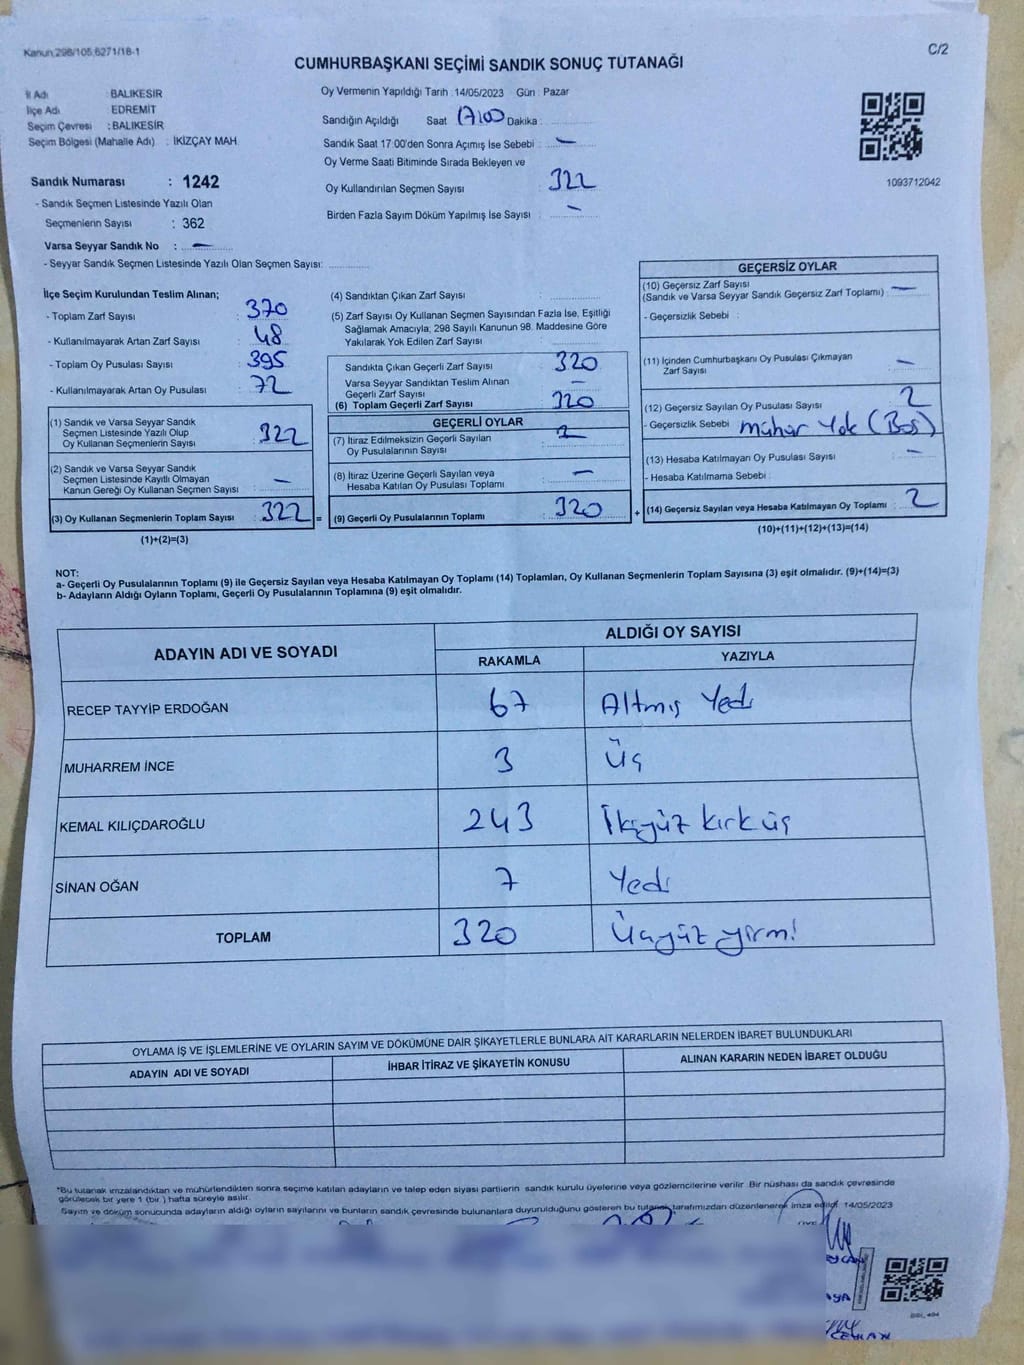 Kanun,298/105,6271/18-1
C/2
CUMHURBAŞKANI SEÇİMİ SANDIK SONUÇ TUTANAĞI
İl Adı : BALIKESİR
İlçe Adı : EDREMİT
Seçim Çevresi : BALIKESİR
Seçim Bölgesi (Mahalle Adı) : İKİZÇAY MAH.
Sandık Numarası : 1242
- Sandık Seçmen Listesinde Yazılı Olan
Seçmenlerin Sayısı : 362
Varsa Seyyar Sandık No : —
- Seyyar Sandık Seçmen Listesinde Yazılı Olan Seçmen Sayısı:
Oy Vermenin Yapıldığı Tarih :14/05/2023 Gün : Pazar
Sandığın Açıldığı Saat 17:00 Dakika :
Sandık Saat 17:00'den Sonra Açımış İse Sebebi : —
Oy Verme Saati Bitiminde Sırada Bekleyen ve
Oy Kullandırılan Seçmen Sayısı : 322
Birden Fazla Sayım Döküm Yapılmış İse Sayısı : —
1093712042
İlçe Seçim Kurulundan Teslim Alınan;
- Toplam Zarf Sayısı : 370
- Kullanılmayarak Artan Zarf Sayısı : 48
- Toplam Oy Pusulası Sayısı : 395
- Kullanılmayarak Artan Oy Pusulası : 72
(1) Sandık ve Varsa Seyyar Sandık
Seçmen Listesinde Yazılı Olup
Oy Kullanan Seçmenlerin Sayısı : 322
(2) Sandık ve Varsa Seyyar Sandık
Seçmen Listesinde Kayıtlı Olmayan
Kanun Gereği Oy Kullanan Seçmen Sayısı : —
(3) Oy Kullanan Seçmenlerin Toplam Sayısı : 322 =
(1)+(2)=(3)
(4) Sandıktan Çıkan Zarf Sayısı :
(5) Zarf Sayısı Oy Kullanan Seçmen Sayısından Fazla İse, Eşitliği
Sağlamak Amacıyla; 298 Sayılı Kanunun 98. Maddesine Göre
Yakılarak Yok Edilen Zarf Sayısı :
Sandıkta Çıkan Geçerli Zarf Sayısı : 320
Varsa Seyyar Sandıktan Teslim Alınan
Geçerli Zarf Sayısı : —
(6) Toplam Geçerli Zarf Sayısı : 320
GEÇERLİ OYLAR
(7) İtiraz Edilmeksizin Geçerli Sayılan
Oy Pusulalarının Sayısı :
(8) İtiraz Üzerine Geçerli Sayılan veya
Hesaba Katılan Oy Pusulası Toplamı : —
(9) Geçerli Oy Pusulalarının Toplamı : 320 +
GEÇERSİZ OYLAR
(10) Geçersiz Zarf Sayısı
(Sandık ve Varsa Seyyar Sandık Geçersiz Zarf Toplamı) : —
- Geçersizlik Sebebi :
(11) İçinden Cumhurbaşkanı Oy Pusulası Çıkmayan
Zarf Sayısı : —
(12) Geçersiz Sayılan Oy Pusulası Sayısı : 2
- Geçersizlik Sebebi : mühür Yok (Boş)
(13) Hesaba Katılmayan Oy Pusulası Sayısı : —
- Hesaba Katılmama Sebebi :
(14) Geçersiz Sayılan veya Hesaba Katılmayan Oy Toplamı : 2
(10)+(11)+(12)+(13)=(14)
NOT:
a- Geçerli Oy Pusulalarının Toplamı (9) ile Geçersiz Sayılan veya Hesaba Katılmayan Oy Toplamı (14) Toplamları, Oy Kullanan Seçmenlerin Toplam Sayısına (3) eşit olmalıdır. (9)+(14)=(3)
b- Adayların Aldığı Oyların Toplamı, Geçerli Oy Pusulalarının Toplamına (9) eşit olmalıdır.
ADAYIN ADI VE SOYADI
ALDIĞI OY SAYISI
RAKAMLA YAZIYLA
RECEP TAYYİP ERDOĞAN 67 Altmış Yedi
MUHARREM İNCE 3 Üç
KEMAL KILIÇDAROĞLU 243 İkiyüz kırk üç
SİNAN OĞAN 7 Yedi
TOPLAM 320 Üçyüz yirmi
OYLAMA İŞ VE İŞLEMLERİNE VE OYLARIN SAYIM VE DÖKÜMÜNE DAİR ŞİKAYETLERLE BUNLARA AİT KARARLARIN NELERDEN İBARET BULUNDUKLARI
ADAYIN ADI VE SOYADI
İHBAR İTİRAZ VE ŞİKAYETİN KONUSU
ALINAN KARARIN NEDEN İBARET OLDUĞU
*Bu tutanak imzalandıktan ve mühürlendikten sonra seçime katılan adayların ve talep eden siyasi partilerin sandık kurulu üyelerine veya gözlemcilerine verilir. Bir nüshası da sandık çevresinde
görülecek bir yere 1 (bir ) hafta süreyle asılır.
Sayım ve döküm sonucunda adayların aldığı oyların sayılarını ve bunların sandık çevresinde bulunanlara duyurulduğunu gösteren bu tutanak tarafımızdan düzenlenerek imza edildi. 14/05/2023